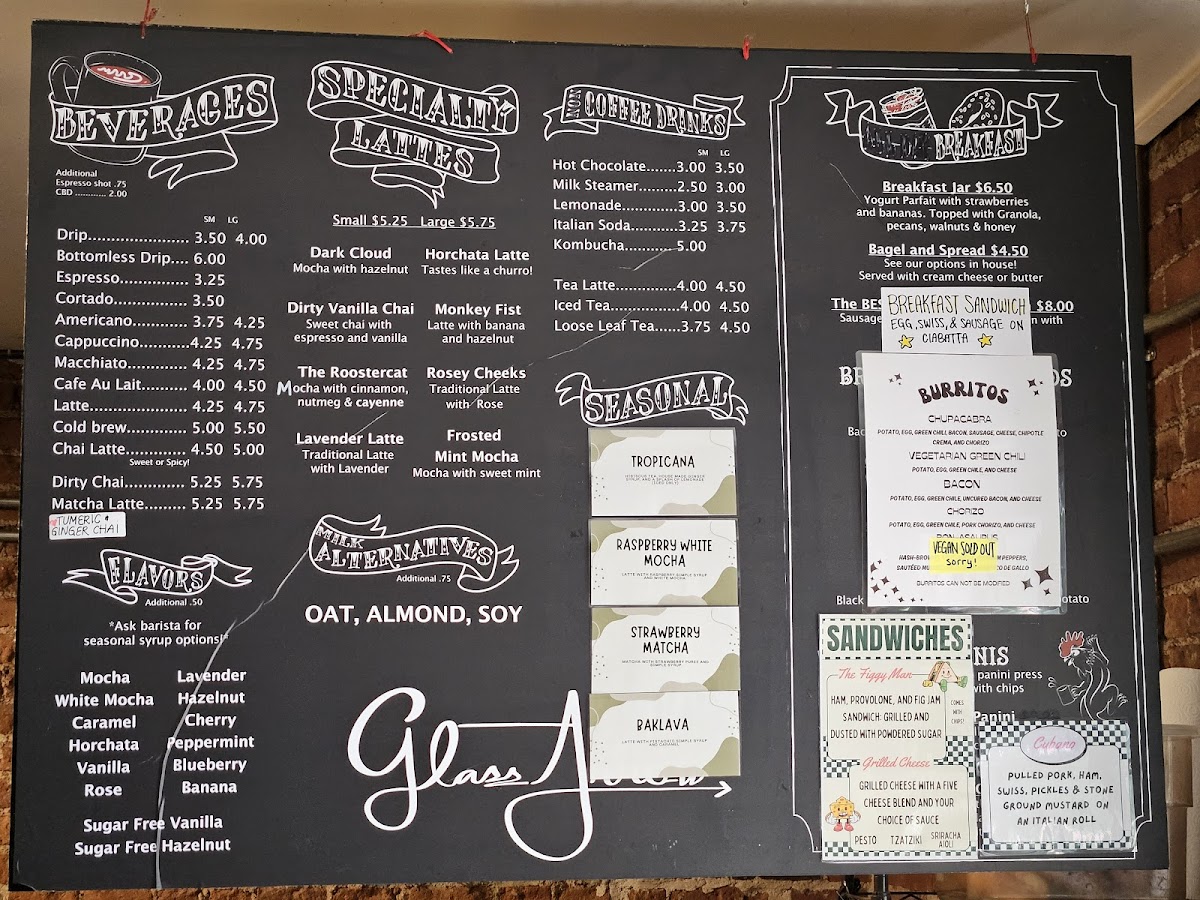 BEVERAGES
Additional
Espresso shot .75
CBD ............ 2.00
SM LG
Drip...................... 3.50 4.00
Bottomless Drip.... 6.00
Espresso................ 3.25
Cortado................. 3.50
Americano............. 3.75 4.25
Cappuccino...........4.25 4.75
Macchiato.............. 4.25 4.75
Cafe Au Lait.......... 4.00 4.50
Latte..................... 4.25 4.75
Cold brew.............. 5.00 5.50
Chai Latte.............. 4.50 5.00
Sweet or Spicy!
Dirty Chai............. 5.25 5.75
Matcha Latte......... 5.25 5.75
TUMERIC &
GINGER CHAI
FLAVORS
Additional .50
*Ask barista for
seasonal syrup options!*
Mocha Lavender
White Mocha Hazelnut
Caramel Cherry
Horchata Peppermint
Vanilla Blueberry
Rose Banana
Sugar Free Vanilla
Sugar Free Hazelnut
SPECIALTY
LATTES
Small $5.25 Large $5.75
Dark Cloud
Mocha with hazelnut
Horchata Latte
Tastes like a churro!
Dirty Vanilla Chai
Sweet chai with
espresso and vanilla
Monkey Fist
Latte with banana
and hazelnut
The Roostercat
Mocha with cinnamon,
nutmeg & cayenne
Rosey Cheeks
Traditional Latte
with Rose
Lavender Latte
Traditional Latte
with Lavender
Frosted
Mint Mocha
Mocha with sweet mint
MILK
ALTERNATIVES
Additional .75
OAT, ALMOND, SOY
Glass
NON COFFEE DRINKS
SM LG
Hot Chocolate.......3.00 3.50
Milk Steamer.........2.50 3.00
Lemonade.............3.00 3.50
Italian Soda...........3.25 3.75
Kombucha............ 5.00
Tea Latte..............4.00 4.50
Iced Tea...............4.00 4.50
Loose Leaf Tea......3.75 4.50
SEASONAL
TROPICANA
HIBISCUS TEA, HOUSE MADE GINGER
SYRUP, AND A SPLASH OF LEMONADE
(ICED ONLY)
RASPBERRY WHITE
MOCHA
LATTE WITH RASPBERRY SIMPLE SYRUP
AND WHITE MOCHA
STRAWBERRY
MATCHA
MATCHA WITH STRAWBERRY PUREE AND
SIMPLE SYRUP
BAKLAVA
LATTE WITH PISTACHIO SIMPLE SYRUP
AND CARAMEL
BREAKFAST
Breakfast Jar $6.50
Yogurt Parfait with strawberries
and bananas. Topped with Granola,
pecans, walnuts & honey
Bagel and Spread $4.50
See our options in house!
Served with cream cheese or butter
The BES $8.00
Sausage with
BREAKFAST SANDWICH
EGG, SWISS, & SAUSAGE ON
CIABATTA
BURRITOS
CHUPACABRA
POTATO, EGG, GREEN CHILI, BACON, SAUSAGE, CHEESE, CHIPOTLE
CREMA, AND CHORIZO
VEGETARIAN GREEN CHILI
POTATO, EGG, GREEN CHILE, AND CHEESE
BACON
POTATO, EGG, GREEN CHILE, UNCURED BACON, AND CHEESE
CHORIZO
POTATO, EGG, GREEN CHILE, PORK CHORIZO, AND CHEESE
VEGAN SOLD OUT
sorry!
HASH-BRO PEPPERS,
SAUTÉED CO DE GALLO
BURRITOS CAN NOT BE MODIFIED
Black otato
NIS
panini press
with chips
Panini
SANDWICHES
The Figgy Man
HAM, PROVOLONE, AND FIG JAM
SANDWICH: GRILLED AND
DUSTED WITH POWDERED SUGAR
COMES
WITH
CHIPS!
Grilled Cheese
GRILLED CHEESE WITH A FIVE
CHEESE BLEND AND YOUR
CHOICE OF SAUCE
PESTO TZATZIKI SRIRACHA
AIOLI
Cubano
PULLED PORK, HAM,
SWISS, PICKLES & STONE
GROUND MUSTARD ON
AN ITALIAN ROLL